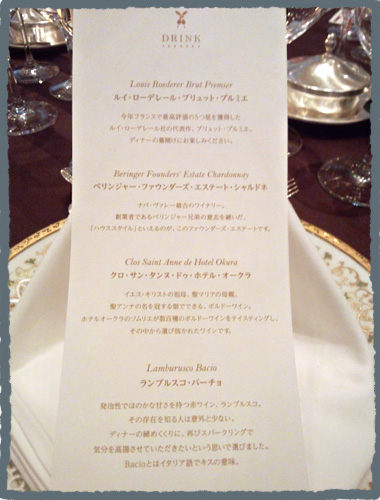 DRINK
Louis Roederer Brut Premier
ルイ・ローデレール・ブリュット・プルミエ
今年フランスで最高評価の5つ星を獲得した
ルイ・ローデレール社の代表作、ブリュット・プルミエ。
ディナーの幕開けにお楽しみください。
Beringer Founders' Estate Chardonnay
ベリンジャー・ファウンダーズ・エステート・シャルドネ
ナパ・ヴァレー最古のワイナリー。
創業者であるベリンジャー兄弟の意志を継いだ、
「ハウススタイル」といえるのが、このファウンダーズ・エステートです。
Clos Saint Anne de Hotel Okura
クロ・サン・タンヌ・ドゥ・ホテル・オークラ
イエス・キリストの祖母、聖マリアの母親、
聖アンナの名を冠する畑でできる、ボルドーワイン。
ホテルオークラのソムリエが数百種のボルドーワインをテイスティングし、
その中から選び抜かれたワインです。
Lamburusco Bacio
ランブルスコ・バーチョ
発泡性でほのかな甘さを持つ赤ワイン、ランブルスコ。
その存在を知る人は意外と少ない。
ディナーの締めくくりに、再びスパークリングで
気分を高揚させていただきたいという思いで選びました。
Bacioとはイタリア語でキスの意味。